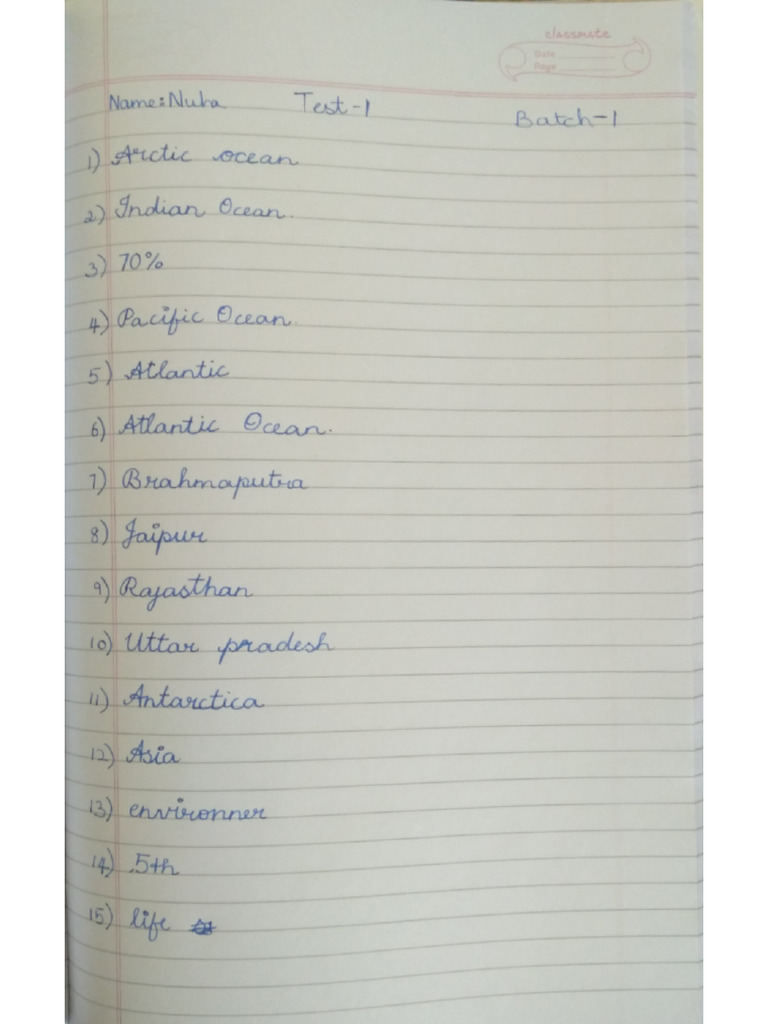 classmate
Date
Page
Name: Nuha Test-1 Batch-1
1) Arctic ocean
2) Indian Ocean.
3) 70%
4) Pacific Ocean.
5) Atlantic
6) Atlantic Ocean.
7) Brahmaputra
8) Jaipur
9) Rajasthan
10) Uttar pradesh
11) Antarctica
12) Asia
13) environner
14) 5th
15) life